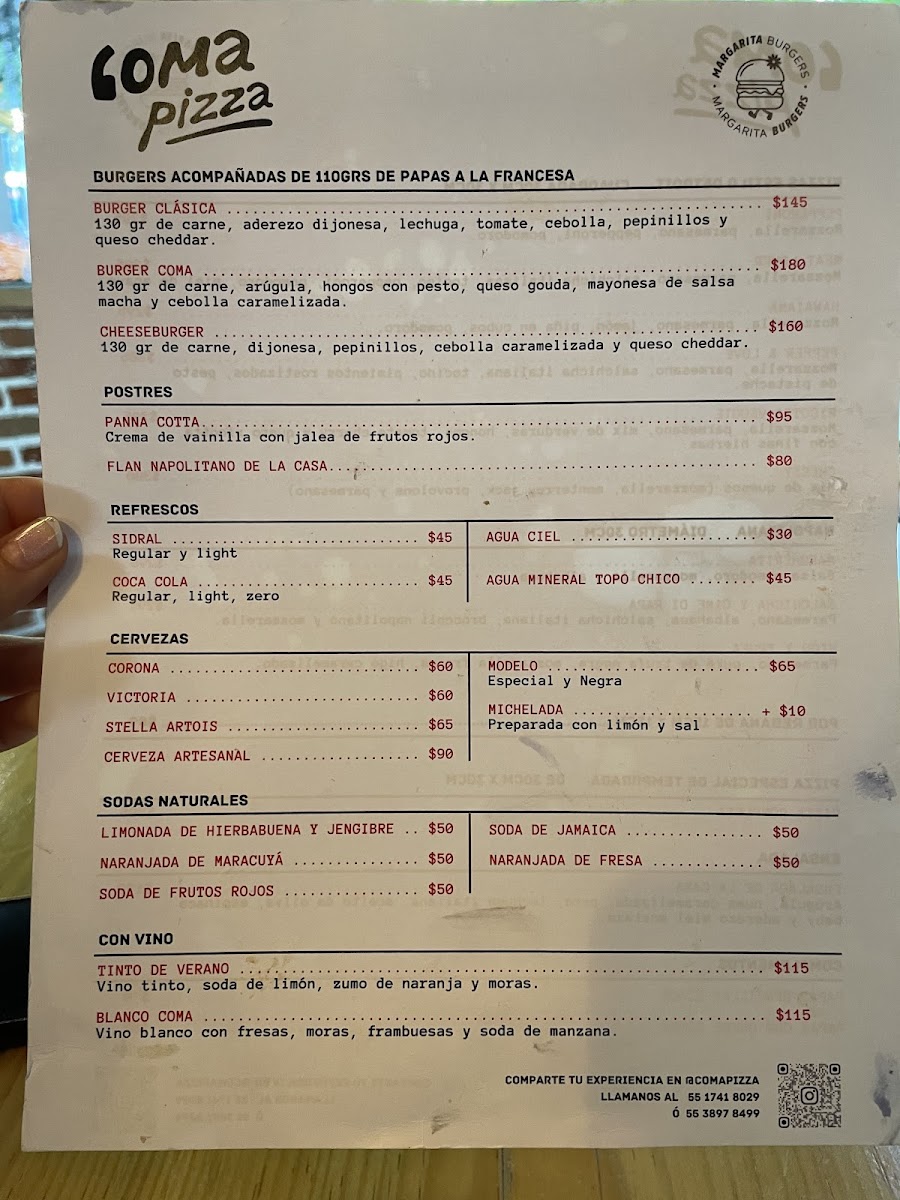 COMA
pizza
MARGARITA BURGERS
MARGARITA BURGERS
BURGERS ACOMPAÑADAS DE 110GRS DE PAPAS A LA FRANCESA
BURGER CLÁSICA ........ $145
130 gr de carne, aderezo dijonesa, lechuga, tomate, cebolla, pepinillos y
queso cheddar.
BURGER COMA ........ $180
130 gr de carne, arúgula, hongos con pesto, queso gouda, mayonesa de salsa
macha y cebolla caramelizada.
CHEESEBURGER ........ $160
130 gr de carne, dijonesa, pepinillos, cebolla caramelizada y queso cheddar.
POSTRES
PANNA COTTA........ $95
Crema de vainilla con jalea de frutos rojos.
FLAN NAPOLITANO DE LA CASA........ $80
REFRESCOS
SIDRAL ........ $45
Regular y light
COCA COLA ........ $45
Regular, light, zero
AGUA CIEL ........ $30
AGUA MINERAL TOPO CHICO ........ $45
CERVEZAS
CORONA ........ $60
VICTORIA ........ $60
STELLA ARTOIS ........ $65
CERVEZA ARTESANAL ........ $90
MODELO ........ $65
Especial y Negra
MICHELADA ........ + $10
Preparada con limón y sal
SODAS NATURALES
LIMONADA DE HIERBABUENA Y JENGIBRE .. $50
NARANJADA DE MARACUYÁ ........ $50
SODA DE FRUTOS ROJOS ........ $50
SODA DE JAMAICA ........ $50
NARANJADA DE FRESA ........ $50
CON VINO
TINTO DE VERANO ........ $115
Vino tinto, soda de limón, zumo de naranja y moras.
BLANCO COMA ........ $115
Vino blanco con fresas, moras, frambuesas y soda de manzana.
COMPARTE TU EXPERIENCIA EN @COMAPIZZA
LLAMANOS AL 55 1741 8029
Ó 55 3897 8499